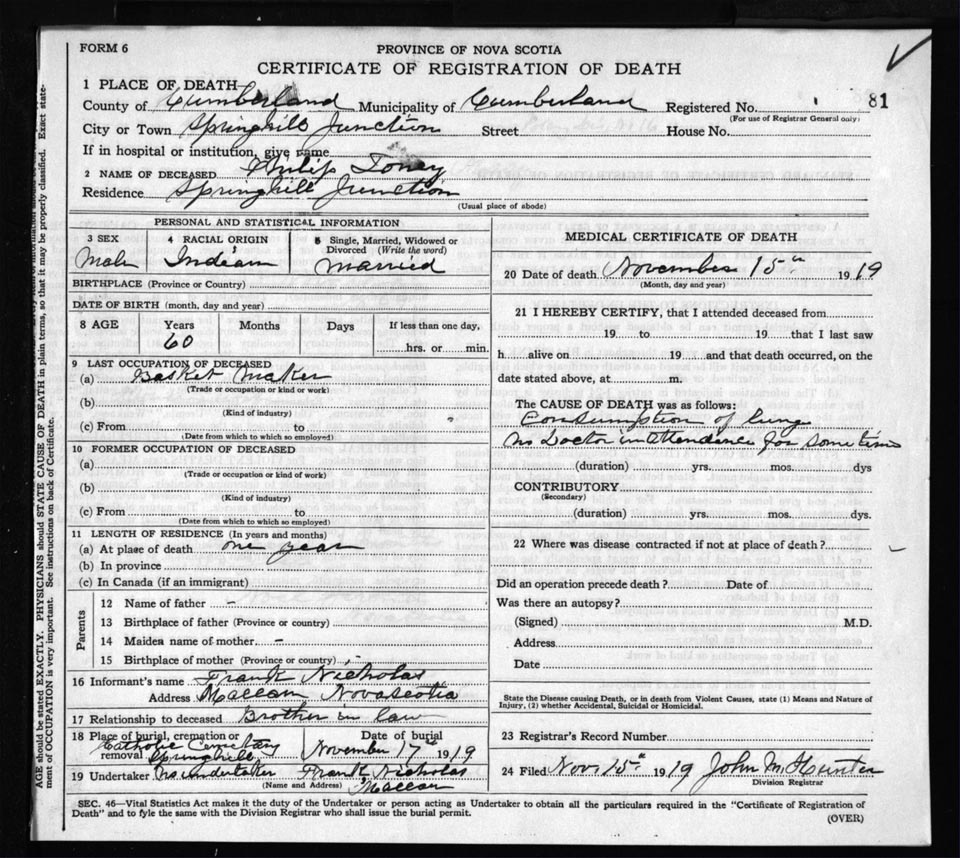 FORM 6
PROVINCE OF NOVA SCOTIA
CERTIFICATE OF REGISTRATION OF DEATH
1 PLACE OF DEATH
County of Cumberland Municipality of Cumberland Registered No. 81
(For use of Registrar General only)
City or Town Springhill Junction Street House No.
If in hospital or institution, give name
2 NAME OF DECEASED Philip Toney
Residence Springhill Junction
(Usual place of abode)
PERSONAL AND STATISTICAL INFORMATION
3 SEX Male
4 RACIAL ORIGIN Indian
5 Single, Married, Widowed or Divorced (Write the word) Married
BIRTHPLACE (Province or Country)
DATE OF BIRTH (month, day and year)
8 AGE Years 60 Months Days If less than one day,
hrs. or min.
9 LAST OCCUPATION OF DECEASED
(a) Basket Maker
(Trade or occupation or kind or work)
(b)
(Kind of industry)
(c) From to
(Date from which to which so employed)
10 FORMER OCCUPATION OF DECEASED
(a)
(Trade or occupation or kind of work)
(b)
(Kind of industry)
(c) From to
(Date from which to which so employed)
11 LENGTH OF RESIDENCE (In years and months)
(a) At place of death one year
(b) In province
(c) In Canada (if an immigrant)
Parents
12 Name of father -
13 Birthplace of father (Province or country)
14 Maiden name of mother -
15 Birthplace of mother (Province or country)
16 Informant's name Frank Nicholas
Address Maccan Nova Scotia
17 Relationship to deceased Brother in law
18 Place of burial, cremation or removal Catholic Cemetary Springhill
Date of burial November 17th 1919
19 Undertaker No undertaker Frank Nicholas
(Name and Address) Maccan
MEDICAL CERTIFICATE OF DEATH
20 Date of death November 15th 1919
(Month, day and year)
21 I HEREBY CERTIFY, that I attended deceased from
19 to 19 that I last saw
h alive on 19 and that death occurred, on the
date stated above, at m.
The CAUSE OF DEATH was as follows:
Consumption of lung
No Doctor in attendance for some time
(duration) yrs. mos. dys
CONTRIBUTORY
(Secondary)
(duration) yrs. mos. dys.
22 Where was disease contracted if not at place of death?
Did an operation precede death? Date of
Was there an autopsy?
(Signed) M.D.
Address
Date
State the Disease causing Death, or in death from Violent Causes, state (1) Means and Nature of
Injury, (2) whether Accidental, Suicidal or Homicidal.
23 Registrar's Record Number
24 Filed Nov 15th 1919 John M. Hunter
Division Registrar
SEC. 46—Vital Statistics Act makes it the duty of the Undertaker or person acting as Undertaker to obtain all the particulars required in the "Certificate of Registration of
Death" and to fyle the same with the Division Registrar who shall issue the burial permit.
(OVER)
AGE should be stated EXACTLY. PHYSICIANS should STATE CAUSE OF DEATH in plain terms, so that it may be properly classified. Exact state-
ment of OCCUPATION is very important. See instructions on back of Certificate.